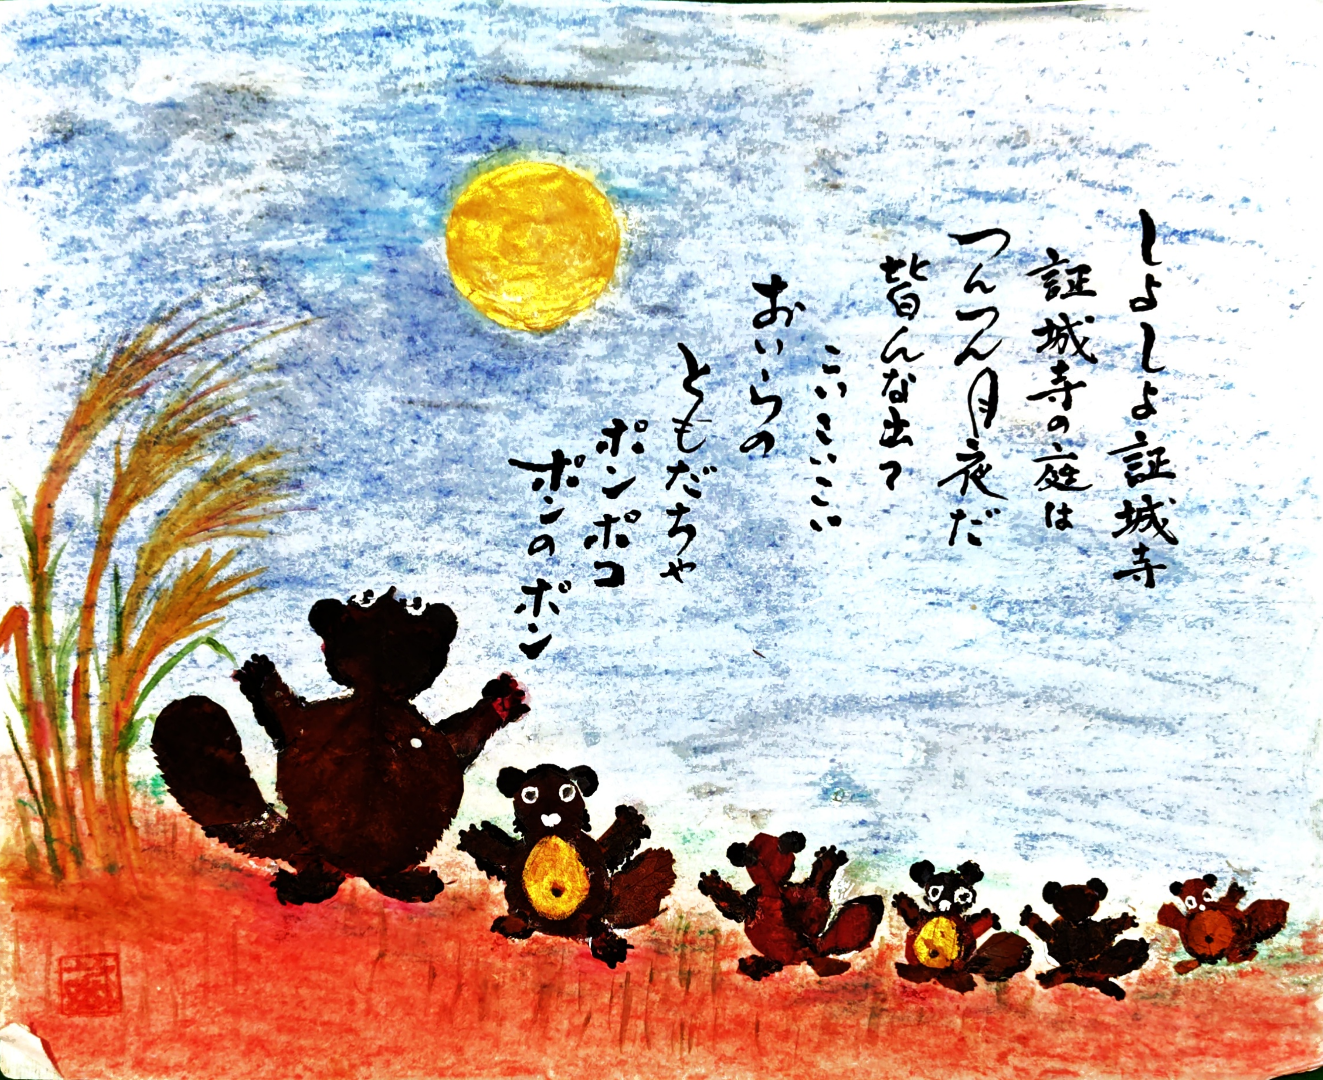 しよしよ証城寺
証城寺の庭は
つんつん月夜だ
皆んな出て
こいこいこい
おいらの
ともだちゃ
ポンポコ
ポンのポン